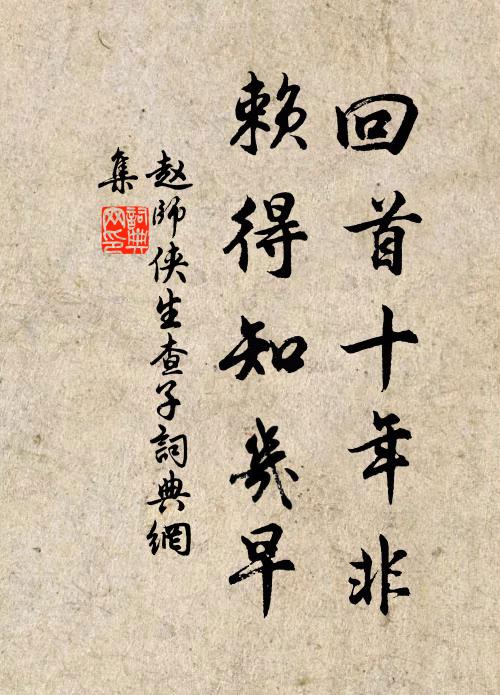 回首十年非
赖得知几早
赵師侠生查子詞典網
集
詞典网印